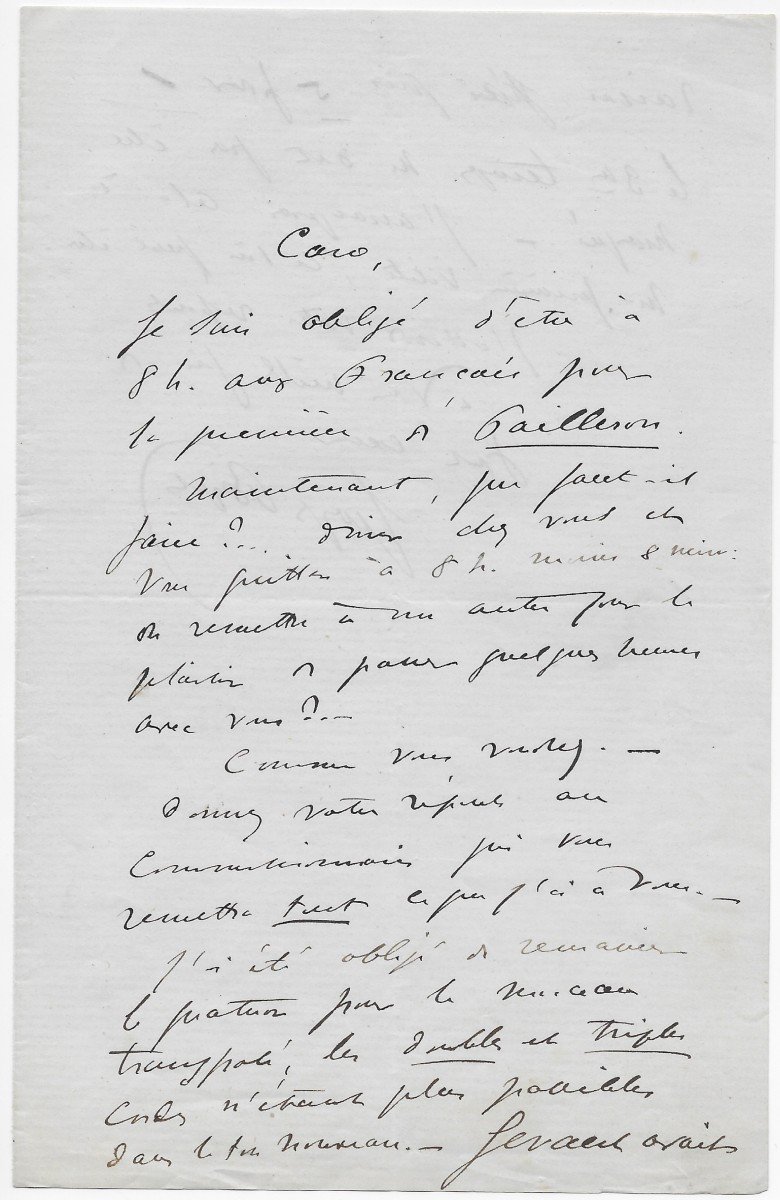 Caro,
Je suis obligé d'être à
8 h. aux Français pour
la première de Pailleron.
Maintenant, que faut-il
faire?... dîner chez vous et
vous quitter à 8 h. moins 8 min:
ou remettre à un autre jour le
plaisir de passer quelques heures
avec vous? —
Comme vous voudrez. —
Donnez votre réponse au
Commissionnaire qui vous
remettra tout ce que j'ai à vous. —
J'ai été obligé de remanier
le quatuor pour le morceau
transposé, les doubles et triples
cordes n'étant plus possibles
dans le ton nouveau. — Gevaert avait